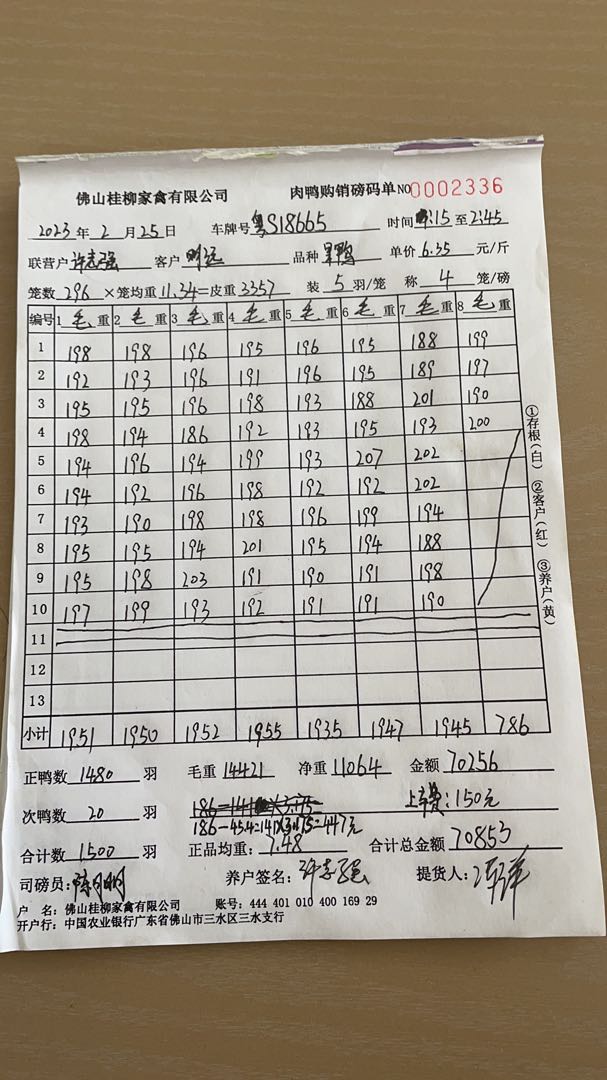 佛山桂柳家禽有限公司 肉鸭购销磅码单 NO 0002336
2023 年 2 月 25 日 车牌号 粤S18665 时间 :15 至 2:45
联营户 许志强 客户 明远 品种 单价 6.35 元/斤
笼数 296 ×笼均重 11.34 =皮重 3357 装 5 羽/笼 称 4 笼/磅
编号 1 毛 重 2 毛 重 3 毛 重 4 毛 重 5 毛 重 6 毛 重 7 毛 重 8 毛 重
1 198 198 196 195 196 195 188 199
2 192 193 196 191 196 195 189 197
3 195 195 196 198 193 188 201 190
4 198 194 186 192 193 195 193 200
5 194 196 194 199 193 207 202
6 194 192 196 198 192 192 202
7 193 190 198 198 196 199 194
8 195 195 194 201 195 194 188
9 195 198 203 191 190 191 198
10 197 199 193 192 191 191 190
11
12
13
小计 1951 1950 1952 1955 1935 1947 1945 786
①存根(白) ②客户(红) ③养户(黄)
正鸭数 1480 羽 毛重 14421 净重 11064 金额 70256
次鸭数 20 羽 上车费:150元
186-45.4=141×3.175=447元
合计数 1500 羽 正品均重: 7.48 合计总金额 70853
司磅员: 养户签名: 许志强 提货人:
户 名: 佛山桂柳家禽有限公司 账号: 444 401 010 400 169 29
开户行: 中国农业银行广东省佛山市三水区三水支行